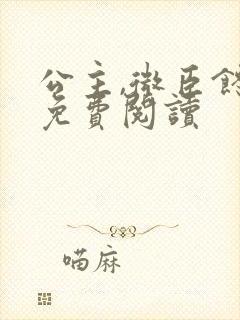 公主,微臣餓
免費閱讀
喵麻